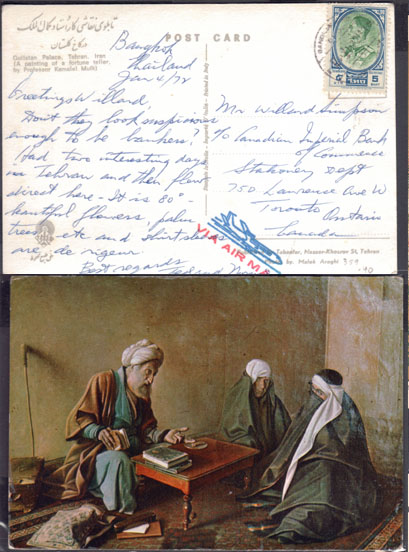 تابلوی نقاشی کار استاد کمال الملک
در کاخ گلستان
Gulistan Palace, Tehran, Iran
(A painting of a fortune teller,
by Professor Kamalol Molk)
POST CARD
Bangkok
Thailand
Jan 4/72
Greetings Willard,
Don't they look suspicious
enough to be bankers?
Had two interesting days
in Tehran and then flew
direct here - It is 80° -
beautiful flowers, palm
trees etc and shirt sleeves
are de rigeur.
Best regards
Ted and
Mr Willard Simpson
c/o Canadian Imperial Bank
of Commerce
Stationery Dept
750 Lawrence Ave W
Toronto Ontario
Canada
VIA AIR MA
Naser-Khosrow St, Tehran
by: Malek Araghi
5